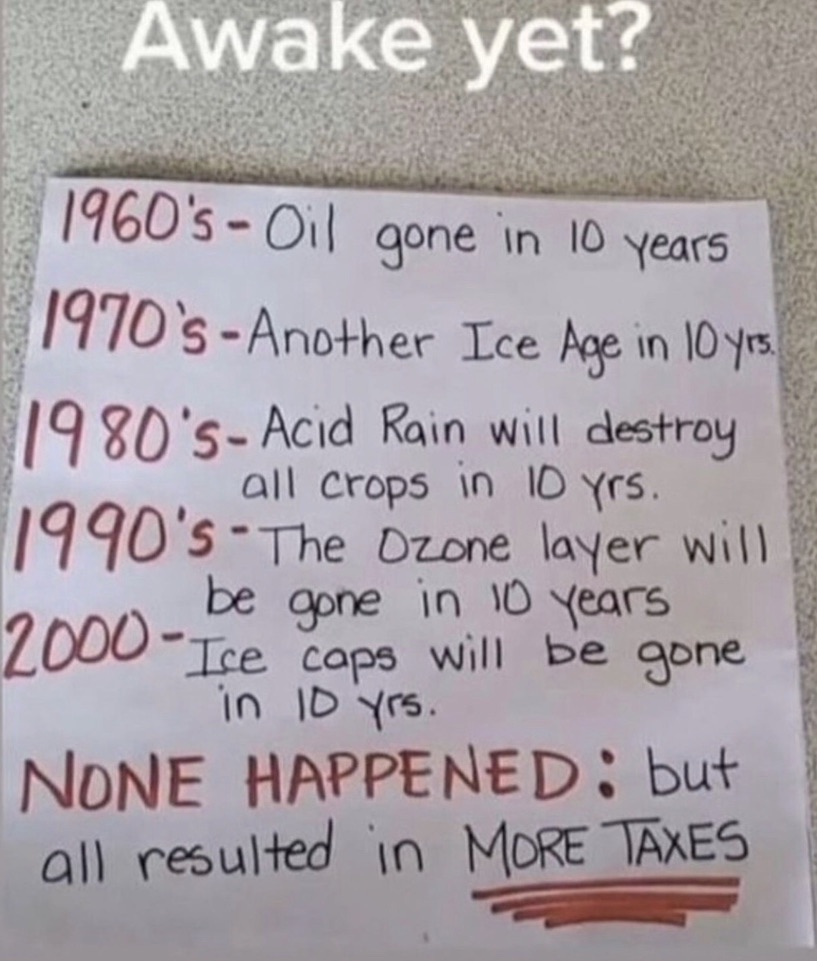 Awake yet?
1960's - Oil gone in 10 years
1970's - Another Ice Age in 10 yrs.
1980's - Acid Rain will destroy
all crops in 10 yrs.
1990's - The Ozone layer will
be gone in 10 years
2000 - Ice caps will be gone
in 10 yrs.
NONE HAPPENED: but
all resulted in MORE TAXES